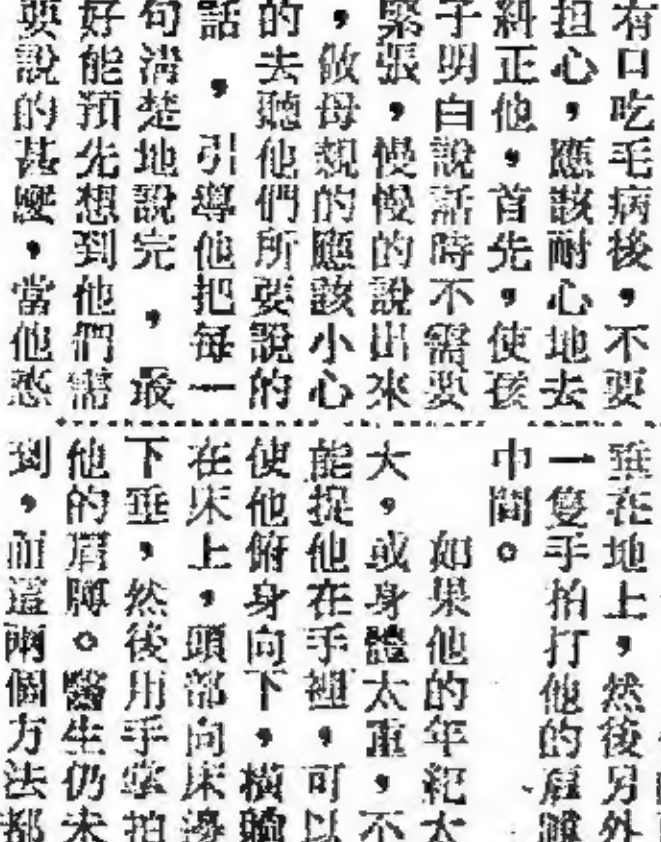 有口吃毛病後，不要
担心，應該耐心地去
糾正他，首先，使孩
子明白說話時不需要
緊張，慢慢的說出來
，做母親的應該小心
的去聽他們所要說的
話，引導他把每一
句清楚地說完，最
好能預先想到他們需
要說的甚麼，當他惑
垂在地上，然後另外
一隻手拍打他的肩
中間。
如果他的年紀太
大，或身體太重，不
能捉他在手裡，可以
使他俯身向下，橫
在床上，頭部向床邊
下垂，然後用手掌拍
他的肩膊。醫生仍未
到，而這兩個方法都